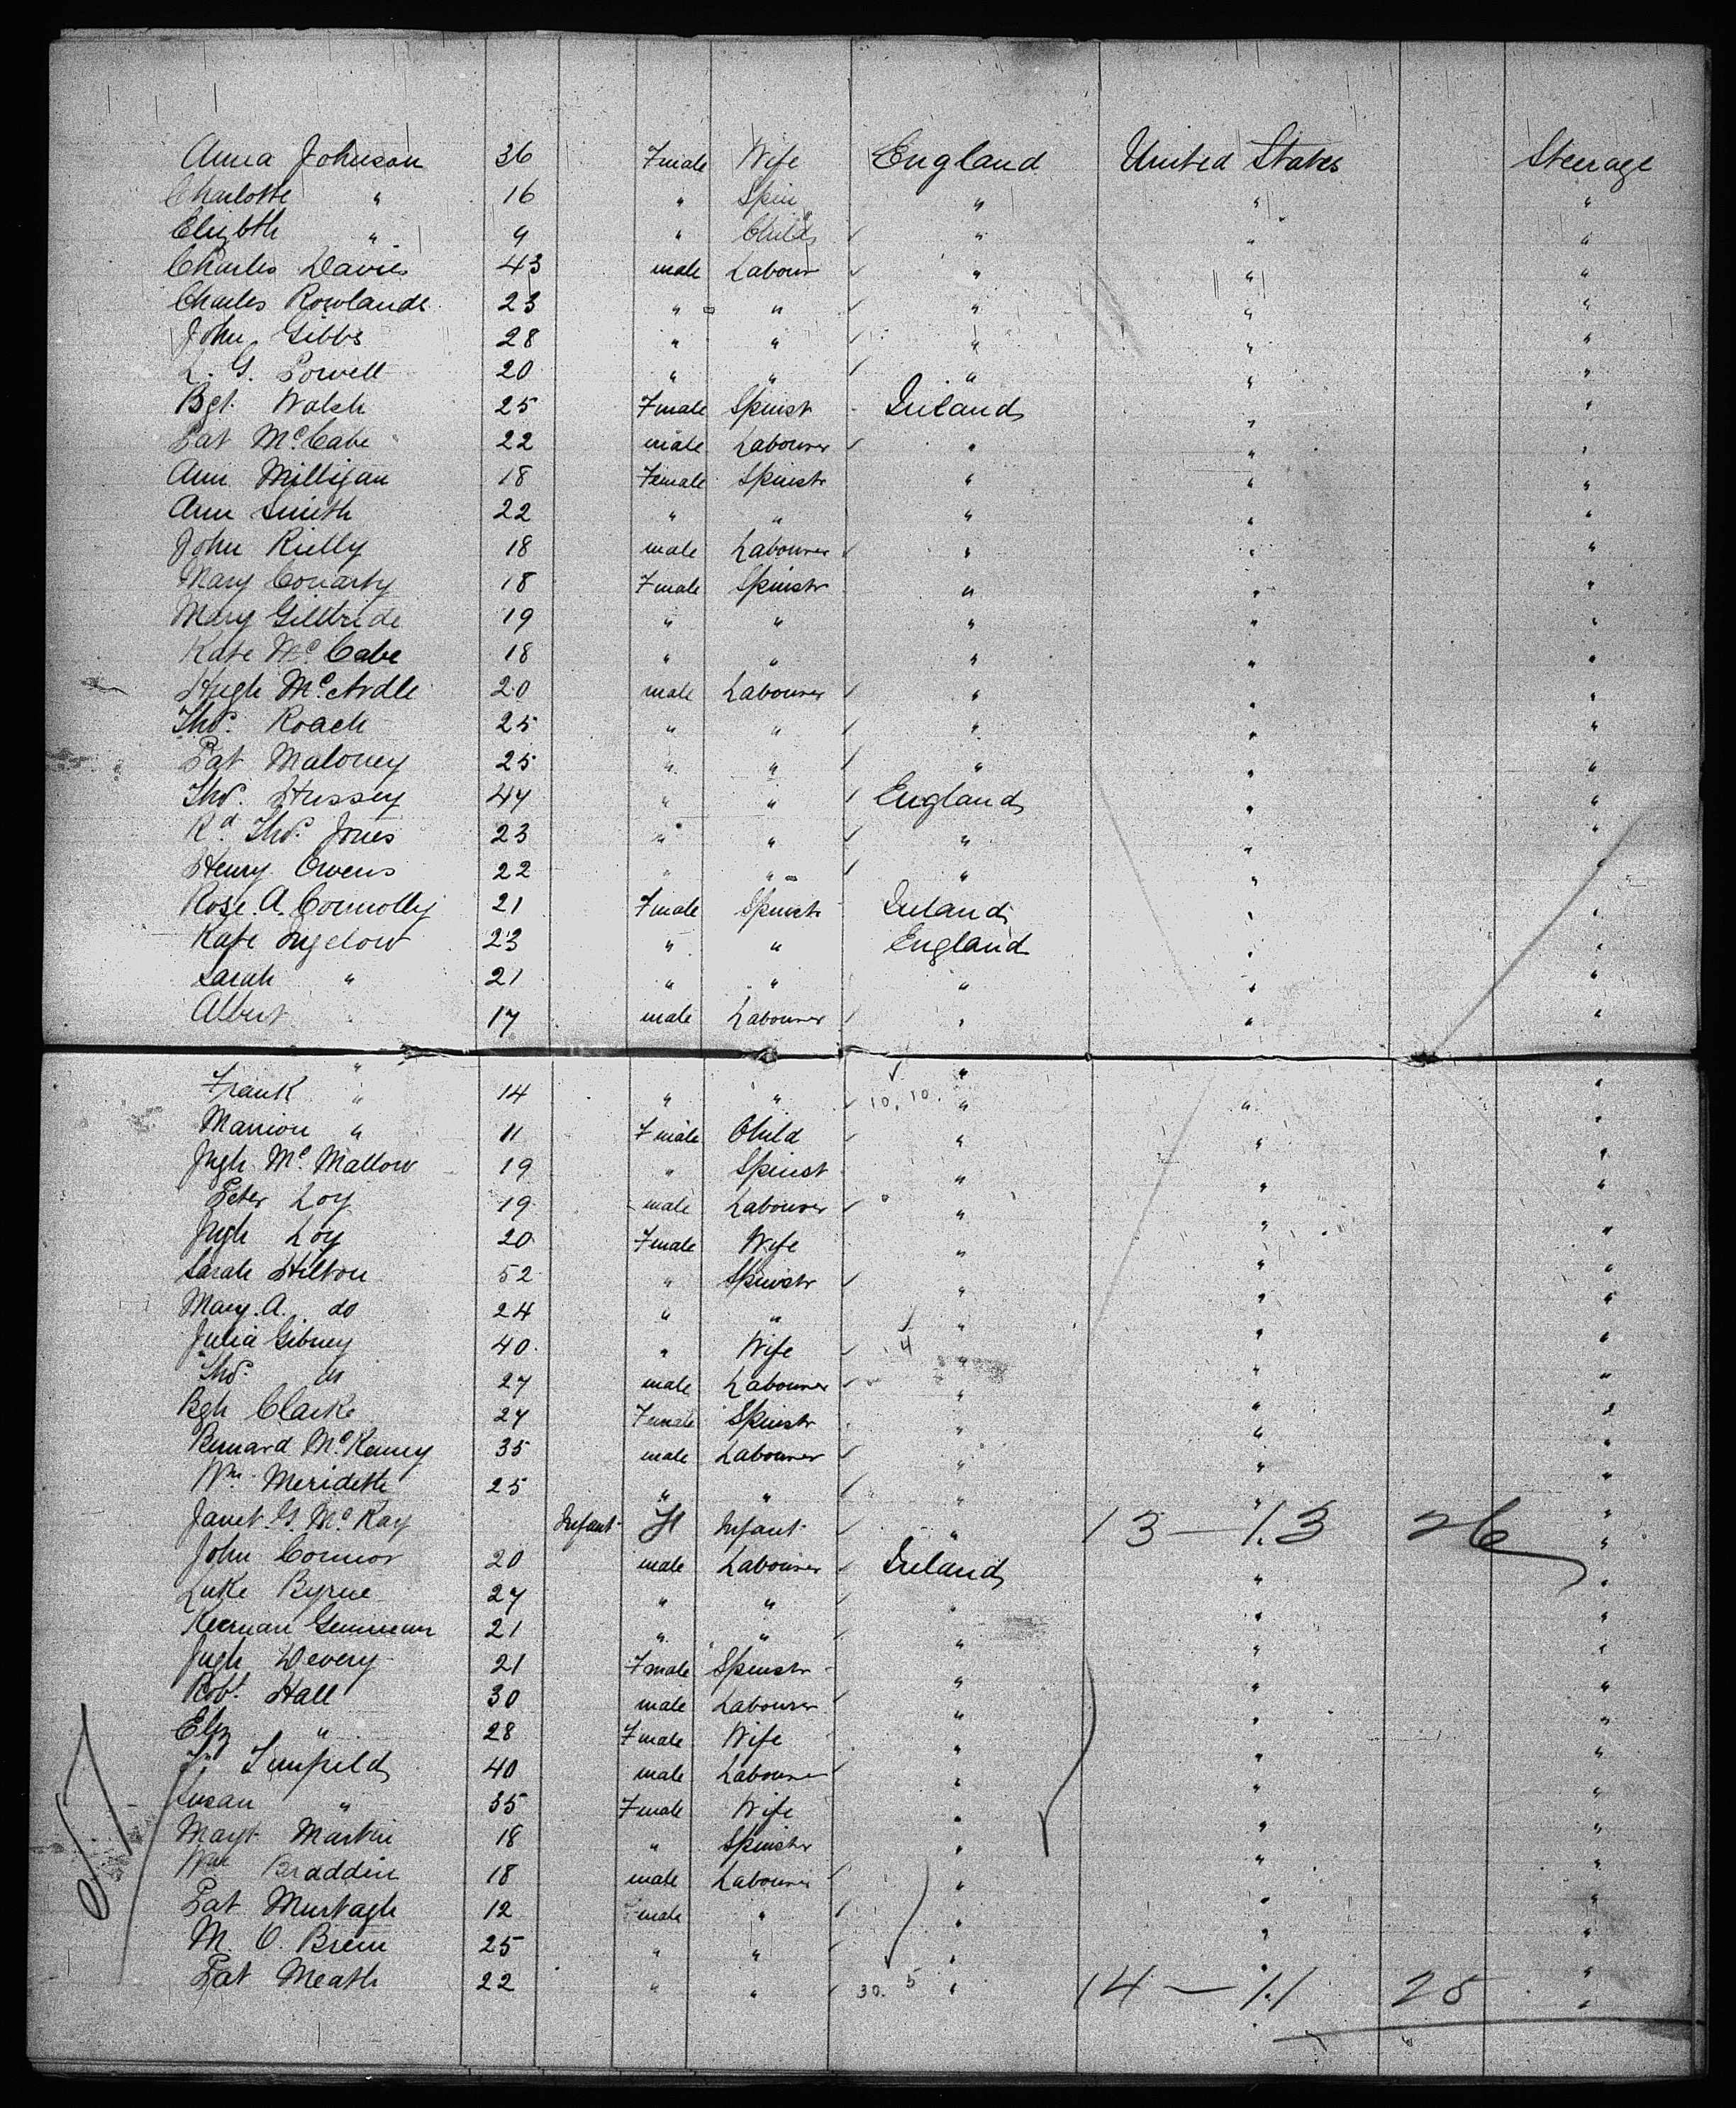 Anna Johnson 36 Female Wife England United States Steerage
Charlotte " 16 " Spin " " "
Elizbth " 9 " Child " " "
Charles Davies 43 male Labour " " "
Charles Rowlands 23 " " " " "
John Gibbs 28 " " " " "
L. G. Powell 20 " " " " "
Bgt. Walsh 25 Female Spinst Ireland " "
Pat McCabe 22 male Labourer " " "
Ann Milligan 18 Female Spinstr " " "
Ann Smith 22 " " " " "
John Rielly 18 male Labourer " " "
Mary Conarty 18 Female Spinstr " " "
Mary Gillbride 19 " " " " "
Kate McCabe 18 " " " " "
Hugh McArdle 20 male Labourer " " "
Thos. Roach 25 " " " " "
Pat Maloney 25 " " " " "
Thos. Hussey 47 " " England " "
Rd Thos. Jones 23 " " " " "
Henry Owens 22 " " " " "
Rose. A. Connolly 21 Female Spinstr Ireland " "
Kate Ingelow 23 " " England " "
Sarah " 21 " " " " "
Albert " 17 male Labourer " " "
Frank " 14 " " 10. 10. " " "
Marrion " 11 Female Child " " "
Mc Mallow 19 " Spinst " " "
Peter Loy 19 male Labourer " " "
Loy 20 Female Wife " " "
Sarah Hilton 52 " Spinstr " " "
Mary. A. do 24 " " " " "
Julia Gibney 40 " Wife 4 " " "
Thos. do 27 male Labourer " " "
Bgh Clarke 27 Female Spinstr " " "
Bernard McKenny 35 male Labourer " " "
Wm. Merideth 25 " " " " "
Janet. G. McKay Infant Infant " 13 — 13 26 "
John Connor 20 male Labourer Ireland " "
Luke Byrne 27 " " " " "
Kiernan 21 " " " " "
Devery 21 Female Spinstr " " "
Robt. Hall 30 male Labourer " " "
Eliz " 28 Female Wife " " "
40 male Labourer " " "
Susan " 35 Female Wife " " "
Mayt Martin 18 " Spinstr " " "
Wm Braddin 18 male Labourer " " "
Pat Murtagh 12 male " " " "
M. O. Brien 25 " " " " "
Pat Meath 22 " " 30. 5 " 14 — 11 25 "